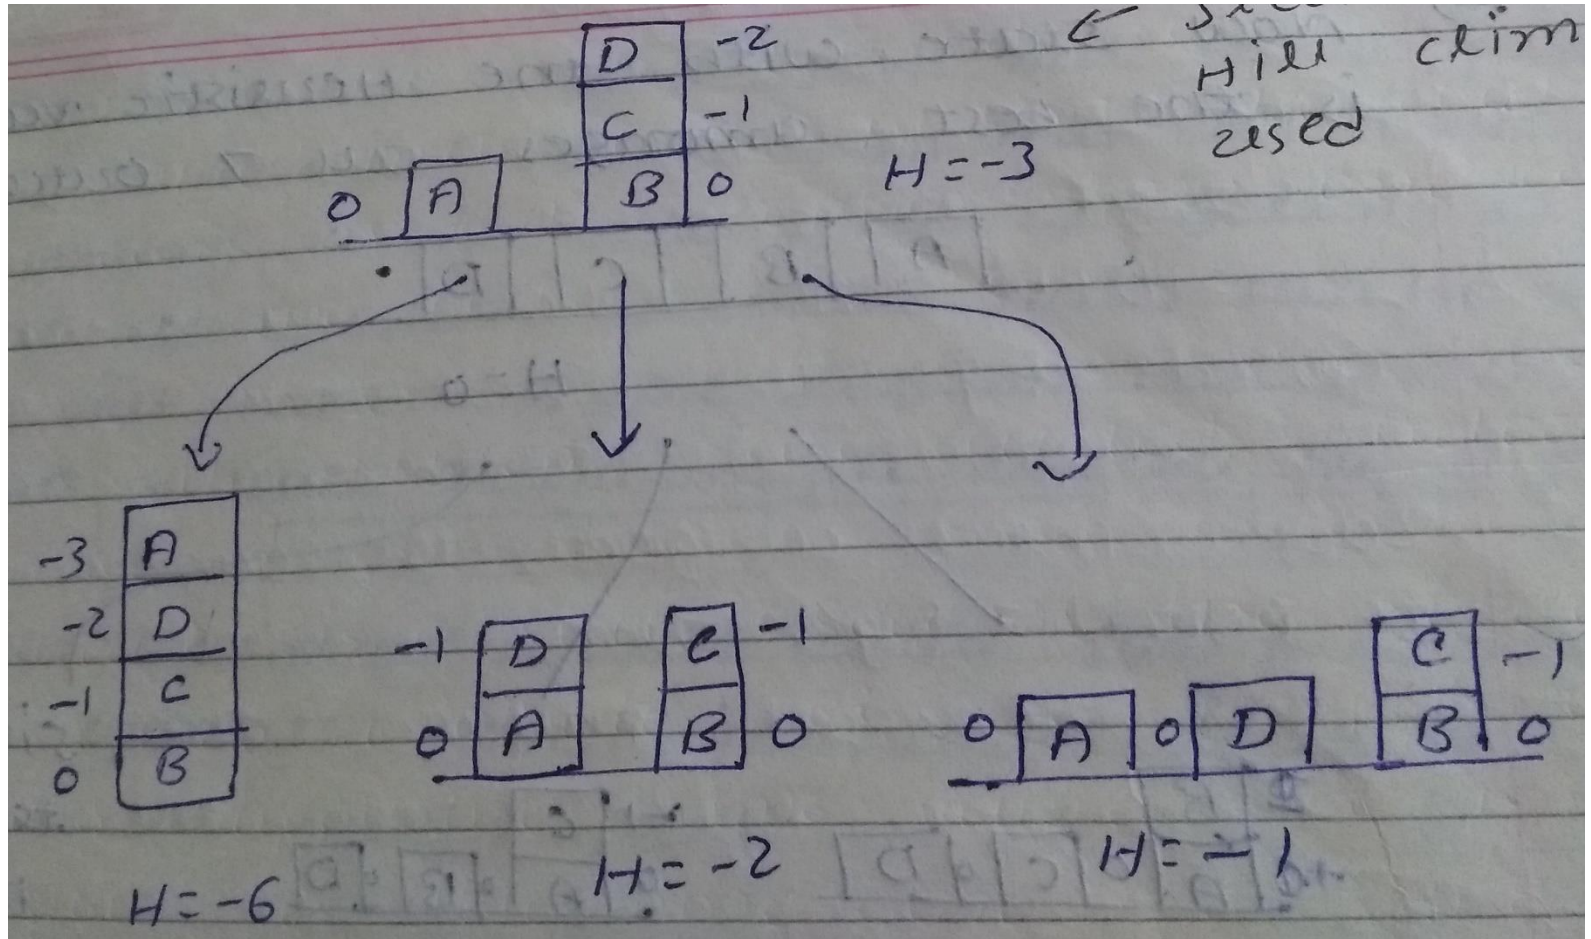 D -2
C -1
0 A B 0
H = -3
←
Hill clim
used
-3 A
-2 D
-1 C
0 B
H = -6
-1 D C -1
0 A B 0
H = -2
C -1
0 A 0 D B 0
H = -1